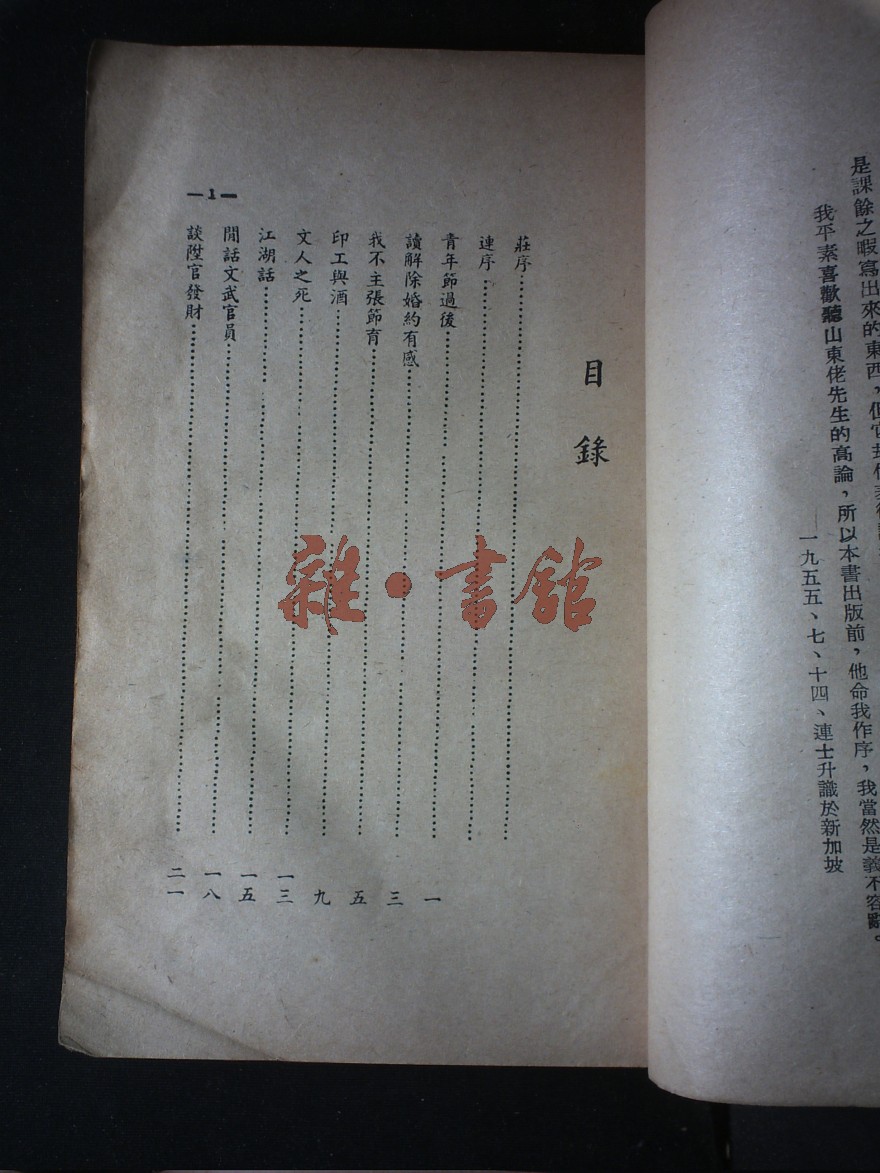 是課餘之暇寫出來的東西，但它却代表
我平素喜歡聽山東佬先生的高論，所以本書出版前，他命我作序，我當然是義不容辭。
一九五五、七、十四、連士升識於新加坡
目錄
莊序……
連序……
青年節過後……一
讀解除婚約有感……三
我不主張節育……五
印工與酒……九
文人之死……一三
江湖話……一五
閒話文武官員……一八
談陞官發財……二一
—1—
雜·書館